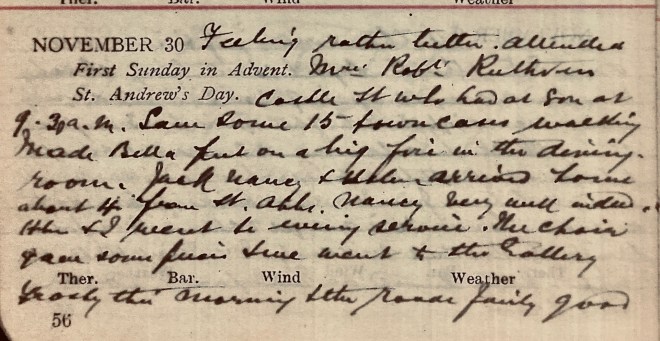 Ther. Bar. Wind Weather
NOVEMBER 30 Feeling rather better. Attended
First Sunday in Advent. Mrs Robt Ruthven
St. Andrew's Day. Castle St who had a son at
9.30 a.m. Saw some 15 town cases walking
Made Bella put on a big fire in the dining-
room. Jack Nancy & arrived home
about 4 from St. Abbs. Nancy very well indeed.
& I went to evening service. The choir
gave some & we went to the Gallery
Ther. Bar. Wind Weather
Frosty this morning & the roads fairly good
56